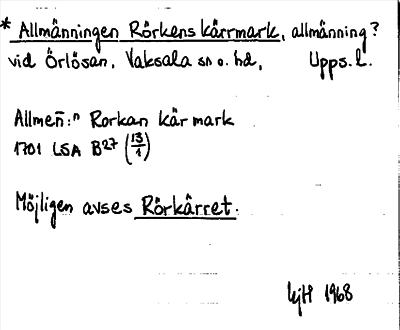 * Allmänningen Rörkens kärrmark, allmänning?
vid Örlösan, Vaksala sn o. hd, Upps. l.
Allmen̄:ⁿ Rorkan kär mark
1701 LSA B27 (13/1)
Möjligen avses Rörkärret.
1968